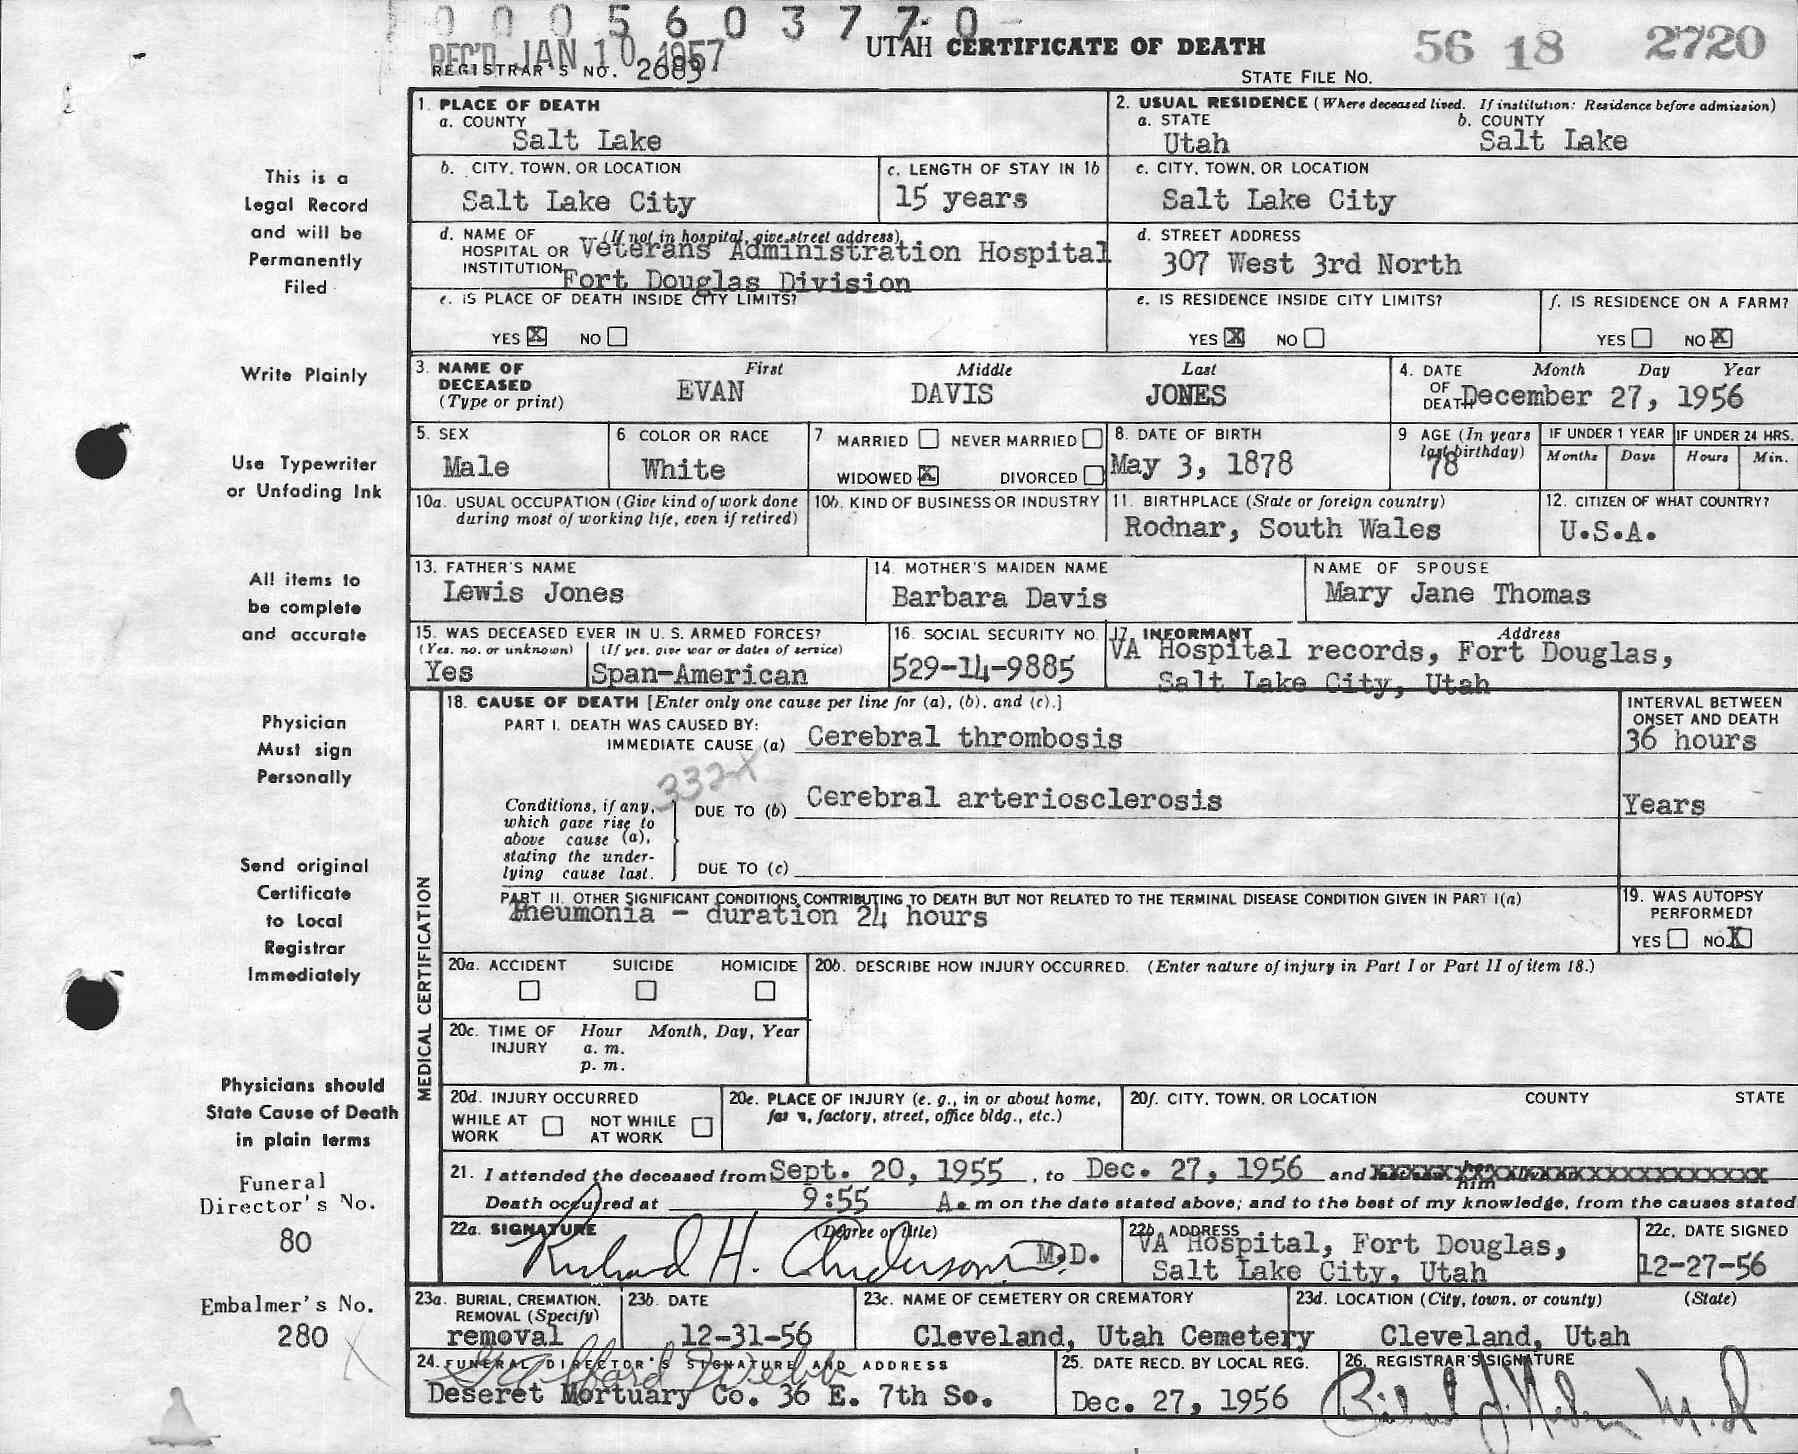 0 0 0 5 6 0 3 7 7 0
REC'D JAN 10 1957
UTAH CERTIFICATE OF DEATH
56 18 2720
REGISTRAR'S NO. 2683
STATE FILE NO.
This is a
Legal Record
and will be
Permanently
Filed
Write Plainly
Use Typewriter
or Unfading Ink
All items to
be complete
and accurate
Physician
Must sign
Personally
Send original
Certificate
to Local
Registrar
Immediately
Physicians should
State Cause of Death
in plain terms
Funeral
Director's No.
80
Embalmer's No.
280 X
1. PLACE OF DEATH
a. COUNTY
Salt Lake
2. USUAL RESIDENCE (Where deceased lived. If institution: Residence before admission)
a. STATE b. COUNTY
Utah Salt Lake
b. CITY, TOWN, OR LOCATION
Salt Lake City
c. LENGTH OF STAY IN 1b
15 years
c. CITY, TOWN, OR LOCATION
Salt Lake City
d. NAME OF (If not in hospital, give street address)
HOSPITAL OR Veterans Administration Hospital
INSTITUTION Fort Douglas Division
d. STREET ADDRESS
307 West 3rd North
e. IS PLACE OF DEATH INSIDE CITY LIMITS?
YES X NO
e. IS RESIDENCE INSIDE CITY LIMITS?
YES X NO
f. IS RESIDENCE ON A FARM?
YES NO X
3. NAME OF First Middle Last
DECEASED EVAN DAVIS JONES
(Type or print)
4. DATE Month Day Year
OF
DEATH December 27, 1956
5. SEX
Male
6. COLOR OR RACE
White
7 MARRIED NEVER MARRIED
WIDOWED X DIVORCED
8. DATE OF BIRTH
May 3, 1878
9 AGE (In years
last birthday)
78
IF UNDER 1 YEAR IF UNDER 24 HRS.
Months Days Hours Min.
10a. USUAL OCCUPATION (Give kind of work done
during most of working life, even if retired)
10b. KIND OF BUSINESS OR INDUSTRY
11. BIRTHPLACE (State or foreign country)
Rodnar, South Wales
12. CITIZEN OF WHAT COUNTRY?
U.S.A.
13. FATHER'S NAME
Lewis Jones
14. MOTHER'S MAIDEN NAME
Barbara Davis
NAME OF SPOUSE
Mary Jane Thomas
15. WAS DECEASED EVER IN U. S. ARMED FORCES?
(Yes, no, or unknown) (If yes, give war or dates of service)
Yes Span-American
16. SOCIAL SECURITY NO.
529-14-9885
17. INFORMANT Address
VA Hospital records, Fort Douglas,
Salt Lake City, Utah
MEDICAL CERTIFICATION
18. CAUSE OF DEATH [Enter only one cause per line for (a), (b), and (c).]
PART I. DEATH WAS CAUSED BY:
IMMEDIATE CAUSE (a) Cerebral thrombosis
INTERVAL BETWEEN
ONSET AND DEATH
36 hours
332X
Conditions, if any,
which gave rise to
above cause (a),
stating the under-
lying cause last.
DUE TO (b) Cerebral arteriosclerosis
Years
DUE TO (c)
PART II. OTHER SIGNIFICANT CONDITIONS CONTRIBUTING TO DEATH BUT NOT RELATED TO THE TERMINAL DISEASE CONDITION GIVEN IN PART I(a)
Pneumonia - duration 24 hours
19. WAS AUTOPSY
PERFORMED?
YES NO X
20a. ACCIDENT SUICIDE HOMICIDE
20b. DESCRIBE HOW INJURY OCCURRED. (Enter nature of injury in Part I or Part II of item 18.)
20c. TIME OF Hour Month, Day, Year
INJURY a. m.
p. m.
20d. INJURY OCCURRED
WHILE AT NOT WHILE
WORK AT WORK
20e. PLACE OF INJURY (e. g., in or about home,
farm, factory, street, office bldg., etc.)
20f. CITY, TOWN, OR LOCATION COUNTY STATE
21. I attended the deceased from Sept. 20, 1955, to Dec. 27, 1956 and
him
Death occurred at 9:55 A. m on the date stated above; and to the best of my knowledge, from the causes stated
22a. SIGNATURE (Degree or title)
Richard H. Anderson M.D.
22b. ADDRESS
VA Hospital, Fort Douglas,
Salt Lake City, Utah
22c. DATE SIGNED
12-27-56
23a. BURIAL, CREMATION,
REMOVAL (Specify)
removal
23b. DATE
12-31-56
23c. NAME OF CEMETERY OR CREMATORY
Cleveland, Utah Cemetery
23d. LOCATION (City, town, or county) (State)
Cleveland, Utah
24. FUNERAL DIRECTOR'S SIGNATURE AND ADDRESS
Webb
Deseret Mortuary Co. 36 E. 7th So.
25. DATE RECD. BY LOCAL REG.
Dec. 27, 1956
26. REGISTRAR'S SIGNATURE
M.D